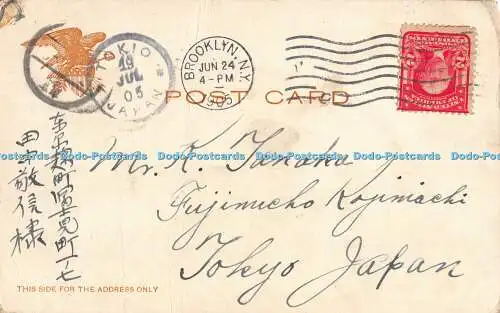 TOKIO
19
JUL
05
JAPAN
BROOKLYN, N.Y.
JUN 24
4-PM
1905
POST CARD
Dodo-Postcards Dodo-Postcards Dodo-Postcards Dodo-Postcards Dodo-Postcards Dodo-Postcards
Mr. K. Tanaka
Fujimicho Kojimachi
Tokyo Japan
东京麹町富士見町一ノ七
田中敬信様
THIS SIDE FOR THE ADDRESS ONLY